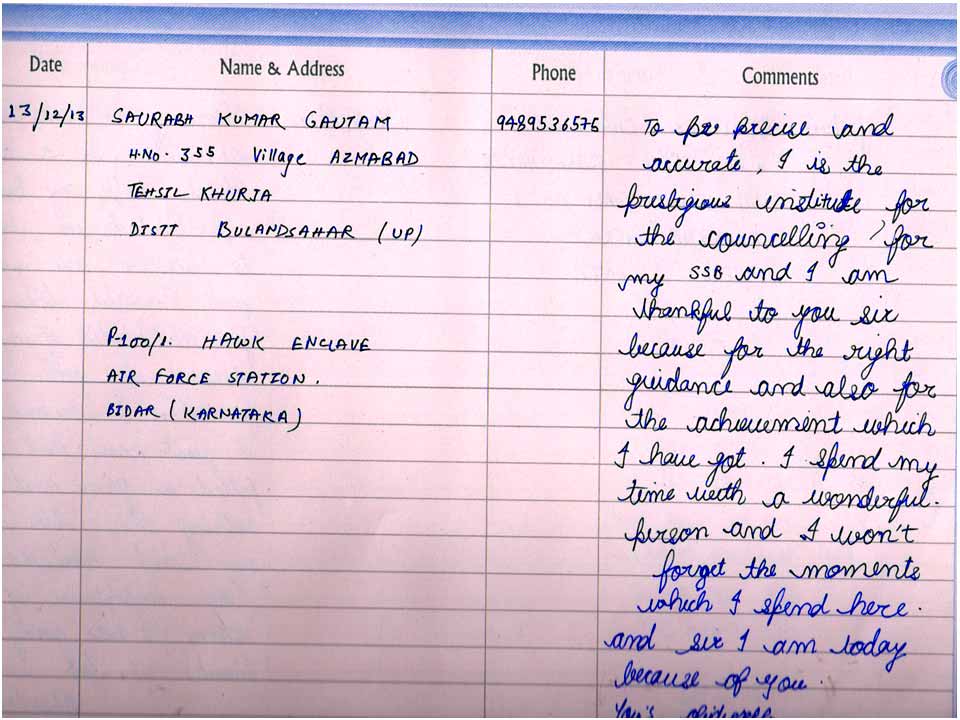 Date Name & Address Phone Comments
13/12/13 SAURABH KUMAR GAUTAM 9489536576
H.NO. 355 Village AZMABAD
TEHSIL KHURJA
DISTT BULANDSAHAR (UP)
P-100/1. HAWK ENCLAVE
AIR FORCE STATION.
BIDAR (KARNATAKA)
To be precise and
accurate, I is the
prestigious institute for
the councelling, for
my SSB and I am
thankful to you sir
because for the right
guidance and also for
the achievement which
I have got. I spend my
time with a wonderful.
person and I won't
forget the moments
which I spend here.
and sir I am today
because of you.
You's